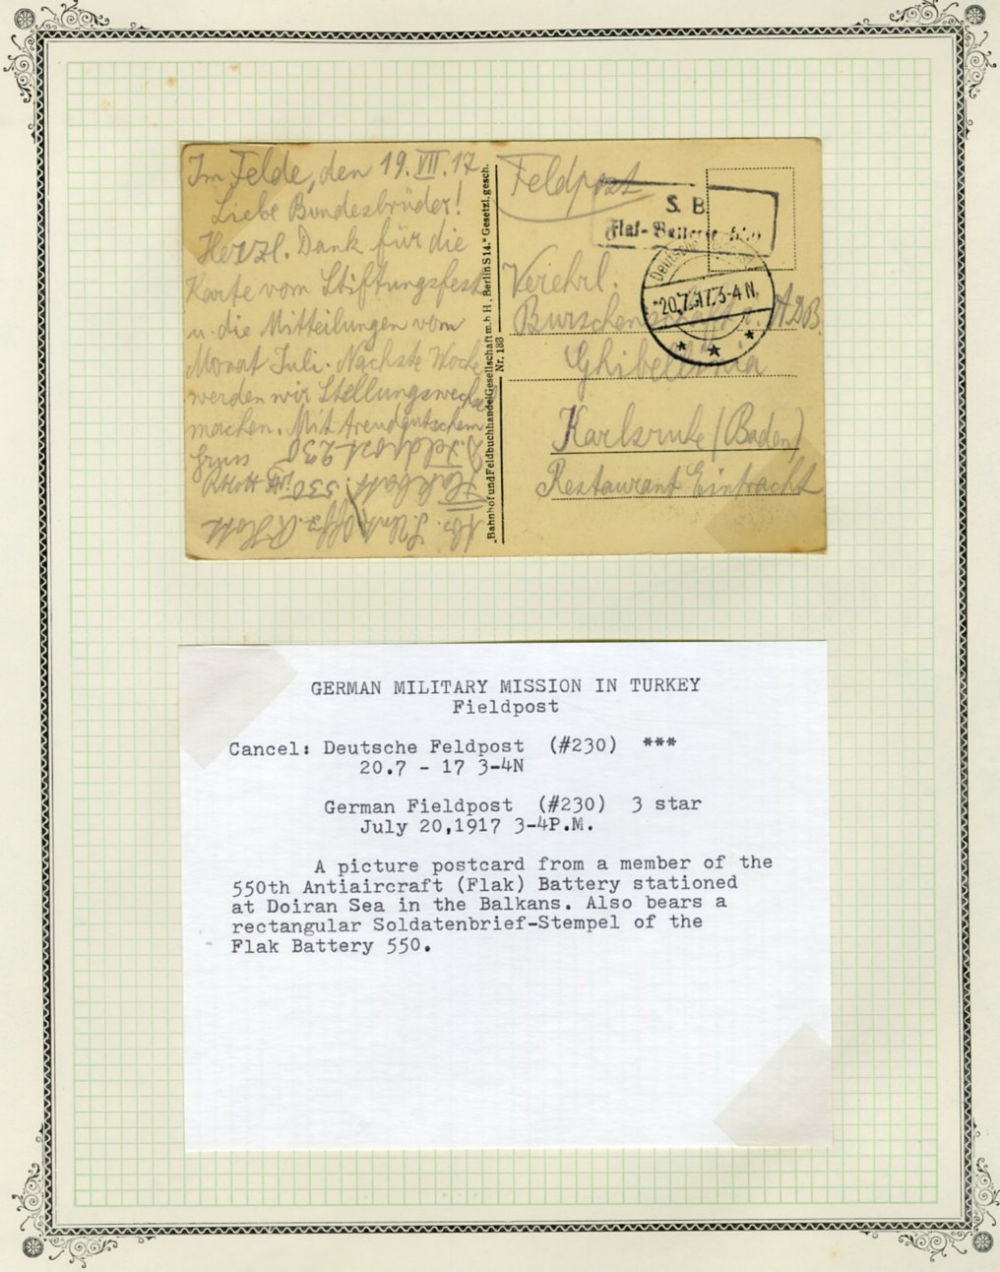 Im Felde, den 19. VII. 17.
Liebe Bundesbrüder!
Herzl. Dank für die
Karte vom Stiftungsfest
u. die Mitteilungen vom
Monat Juli. Nächste Woche
werden wir Stellungswechsel
machen. Mit treudeutschem
Gruss
D. Feldpost 230
"Bahnhof und Feldbuchhandel Gesellschaft m. b. H., Berlin S 14." Gesetzl. gesch.
Nr. 183
Feldpost
S. B.
Flak-Batterie 550
Deutsche
*20.7.17.3-4 N.
* * *
Verehrl.
Burschenschaft i. ADB.
Ghibellinia
Karlsruhe (Baden)
Restaurant Eintracht
GERMAN MILITARY MISSION IN TURKEY
Fieldpost
Cancel: Deutsche Feldpost (#230) ***
20.7 - 17 3-4N
German Fieldpost (#230) 3 star
July 20,1917 3-4P.M.
A picture postcard from a member of the
550th Antiaircraft (Flak) Battery stationed
at Doiran Sea in the Balkans. Also bears a
rectangular Soldatenbrief-Stempel of the
Flak Battery 550.